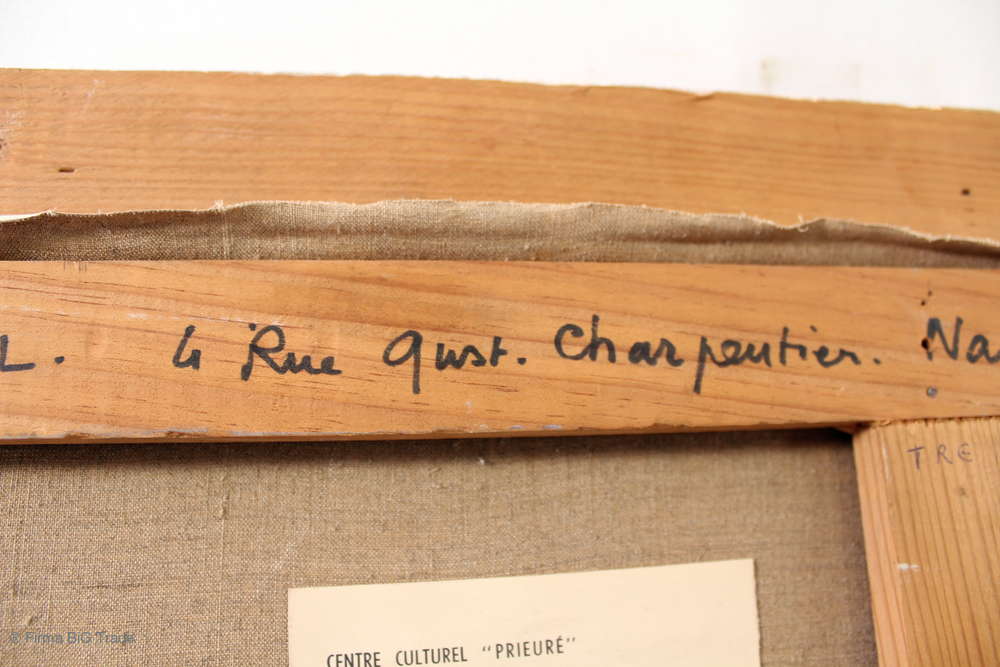 L. 4 Rue Gust. Charpentier. Na
TRE
CENTRE CULTUREL "PRIEURÉ"
© Firma BIG Trade